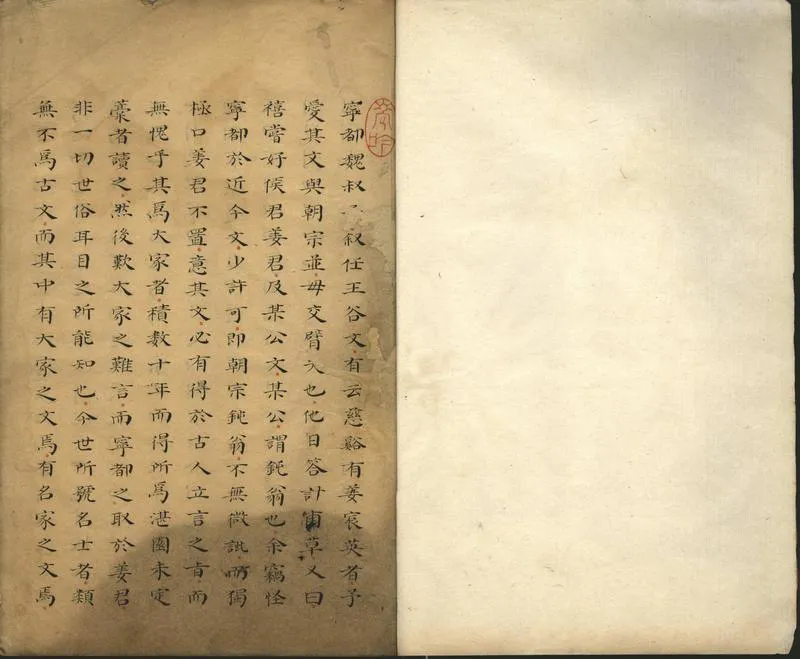 寧都魏叔子叙任王谷文有云慈谿有姜宸英者予
愛其文與朝宗並毋交臂失也他日答計甫草又曰
禧嘗好侯君姜君及某公文某公謂鈍翁也余竊怪
寧都於近今文少許可即朝宗鈍翁不無微訿而獨
極口姜君不置意其文必有得於古人立言之旨而
無愧乎其爲大家者積數十年而得所爲湛園未定
藁者讀之然後歎大家之難言而寧都之取於姜君
非一切世俗耳目之所能知也今世所號名士者類
無不爲古文而其中有大家之文焉有名家之文焉